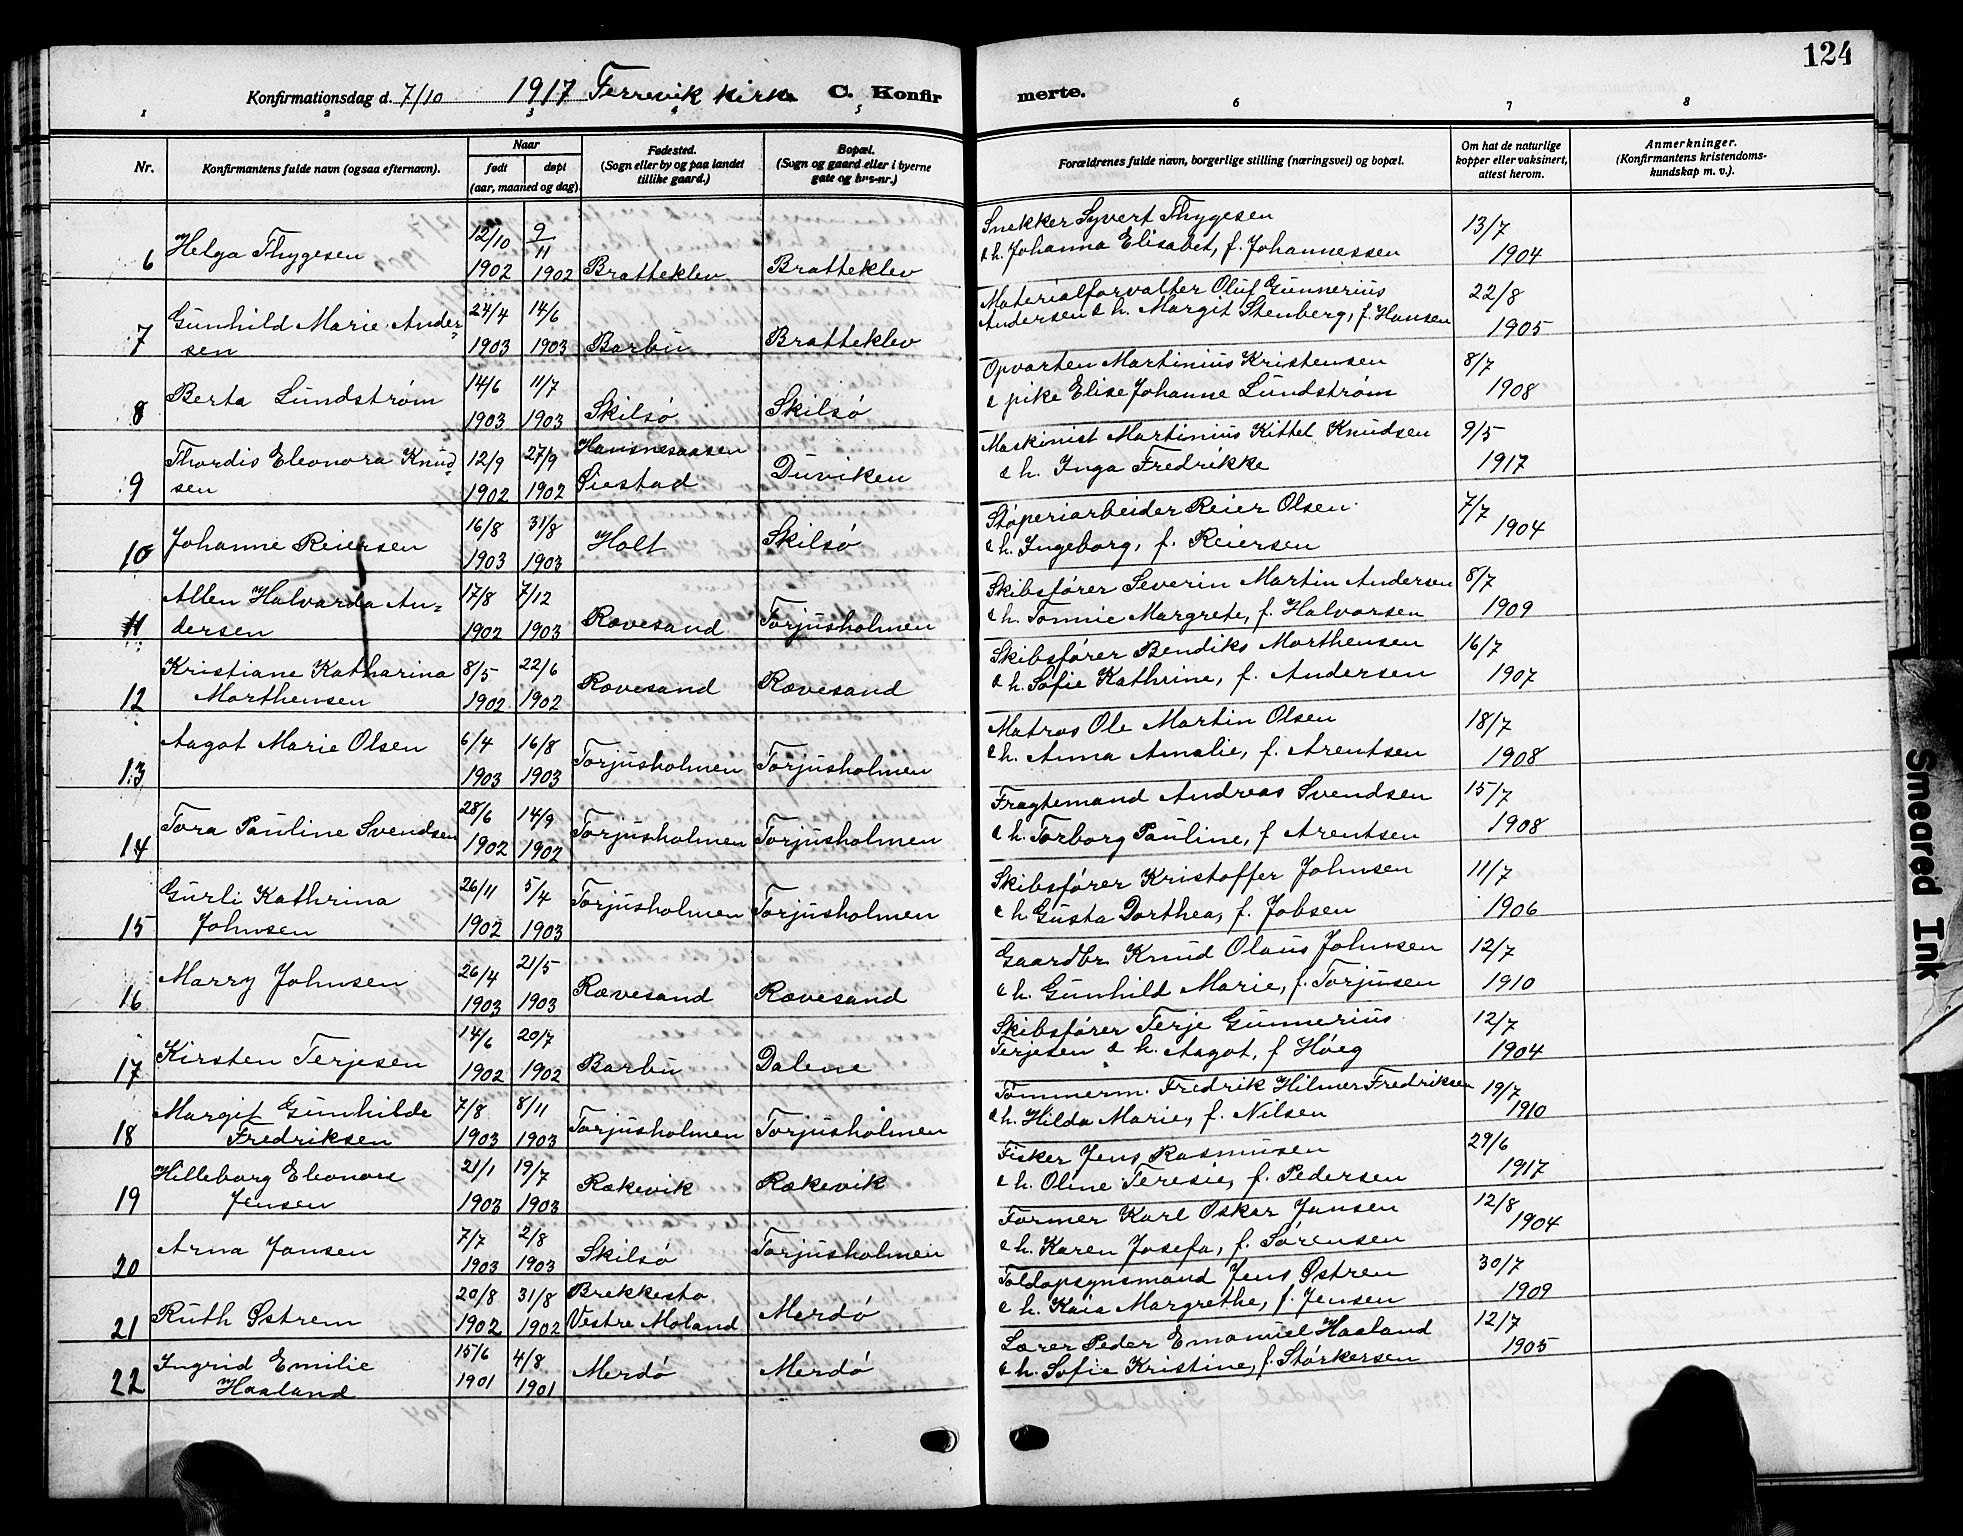 124
Konfirmationsdag d. 7/10 1917 Ferrevik kirke C. Konfirmerte.
1 2 3 4 5 6 7 8
Nr.
Konfirmantens fulde navn (ogsaa efternavn).
Naar
født døpt
(aar, maaned og dag)
Fødested.
(Sogn eller by og paa landet
tillike gaard.)
Bopæl.
(Sogn og gaard eller i byerne
gate og hus-nr.)
Forældrenes fulde navn, borgerlige stilling (næringsvei) og bopæl.
Om hat de naturlige
kopper eller vaksinert,
attest herom.
Anmerkninger.
(Konfirmantens kristendoms-
kundskap m. v.).
6 Helga Thygesen 12/10 1902 9/11 1902 Bratteklev Bratteklev
Snekker Syvert Thygesen
& h. Johanna Elisabet, f. Johannessen
13/7 1904
7 Gunhild Marie Ander-
sen 24/4 1903 14/6 1903 Barbu Bratteklev
Materialforvalter Oluf Gunnerius
Andersen & h. Margit Stenberg, f. Hansen
22/8 1905
8 Berta Lundstrøm 14/6 1903 11/7 1903 Skilsø Skilsø
Opvarten Martinius Kristensen
& pike Elise Johanne Lundstrøm
8/7 1908
9 Thordis Eleonora Knud-
sen 12/9 1902 27/9 1902 Havsnesaasen
Øiestad Duviken
Maskinist Martinius Kittel Knudsen
& h. Inga Fredrikke
9/5 1917
10 Johanne Reiersen 16/8 1903 31/8 1903 Holt Skilsø
Støperiarbeider Reier Olsen
& h. Ingeborg, f. Reiersen
7/7 1904
11 Alten Halvarda An-
dersen 17/8 1902 7/12 1903 Rævesand Torjusholmen
Skibsfører Severin Martin Andersen
& h. Tomine Margrete, f. Halvorsen
8/7 1909
12 Kristiane Katharina
Morthensen 8/5 1902 22/6 1902 Rævesand Rævesand
Skibsfører Bendiks Morthensen
& h. Sofie Kathrine, f. Andersen
16/7 1907
13 Aagot Marie Olsen 6/4 1903 16/8 1903 Torjusholmen Torjusholmen
Matros Ole Martin Olsen
& h. Anna Amalie, f. Arentsen
18/7 1908
14 Tora Pauline Svendsen 28/6 1902 14/9 1902 Torjusholmen Torjusholmen
Fragtemand Andreas Svendsen
& h. Torborg Pauline, f Arentsen
15/7 1908
15 Gurli Kathrina
Johnsen 26/11 1902 5/4 1903 Torjusholmen Torjusholmen
Skibsfører Kristoffer Johnsen
& h Gusta Dorthea, f. Jobsen
11/7 1906
16 Marry Johnsen 26/4 1903 21/5 1903 Rævesand Rævesand
Gaardbr. Knud Olaus Johnsen
& h. Gunhild Marie, f. Torjusen
12/7 1910
17 Kirsten Terjesen 14/6 1902 20/7 1902 Barbu Dalene
Skibsfører Terje Gunnerius
Terjesen & h. Aagot, f Høeg
12/7 1904
18 Margit Gunhilde
Fredriksen 7/8 1903 8/11 1903 Torjusholmen Torjusholmen
Tømmerm. Fredrik Hilmer Fredriksen
& h. Hilda Marie, f. Nilsen
19/7 1910
19 Hilleborg Eleonore
Jensen 21/1 1903 19/7 1903 Rækevik Rækevik
Fisker Jens Rasmusen
& h. Oline Teresie, f. Pedersen
29/6 1917
20 Arna Jansen 7/7 1903 2/8 1903 Skilsø Torjusholmen
Former Karl Oskar Jansen
& h. Karen Josefa, f. Sørensen
12/8 1904
21 Ruth Østrem 20/8 1902 31/8 1902 Brekkestø
Vestre Moland Merdø
Toldopsynsmand Jens Østren
& h. Kaia Margrethe, f. Jensen
30/7 1909
22 Ingrid Emilie
Haaland 15/6 1901 4/8 1901 Merdø Merdø
Lærer Peder Emanuel Haaland
& h. Sofie Kristine, f. Størkersen
12/7 1905
Smeared Ink